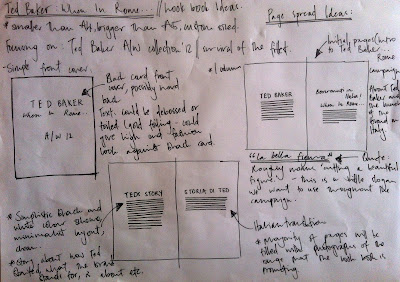 Ted Baker : When In Rome... / Look book Ideas.
* Smaller than A4, bigger than A5, custom sized
focusing on: Ted Baker A/W collection '12 / survival of the fittest.
- Simple front cover.
TED BAKER
When in Rome...
A/W 12
Black card front
cover, possibly hard
back.
Text could be debossed or
foiled (gold foiling could
give high end fashion
look against Black card.
Page Spread Ideas:
* 1 column
TED BAKER
Benvenuti in
Italia!
When in Rome...
Initial pages (intro
to Ted Baker...
Rome
campaign
About Ted
Baker and
the launch
of the
brand in
Italy
"La bella figura"
Quote
Roughly means 'cutting a beautiful
figure' - this is a slogan
we want to use throughout the
campaign.
TED'S STORY
STORIA DI TED
* Simplistic Black and
white colour scheme,
minimalist layout,
clean.
* Story about how Ted
started, what the brand
stands for, & about etc.
Italian translation
* Majority of pages will be
filled with photographs of the
range that the look book is
promoting